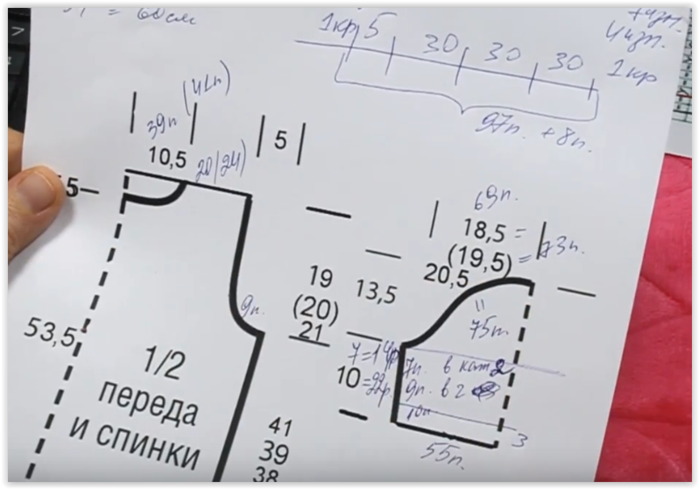 = 60см
4 чзп.
1кр 5 30 30 30 1кр
97п. + 8п.
39п (41п)
10,5
20(24)
5
5
69п.
18,5 =
(19,5) = 73п.
20,5
= 75п
19
(20)
21
13,5
9п.
53,5
1/2
переда
и спинки
7=14р
7п. в кат 2
10 =22р.
9п. в 2
10п
3
55п.
41
39
38